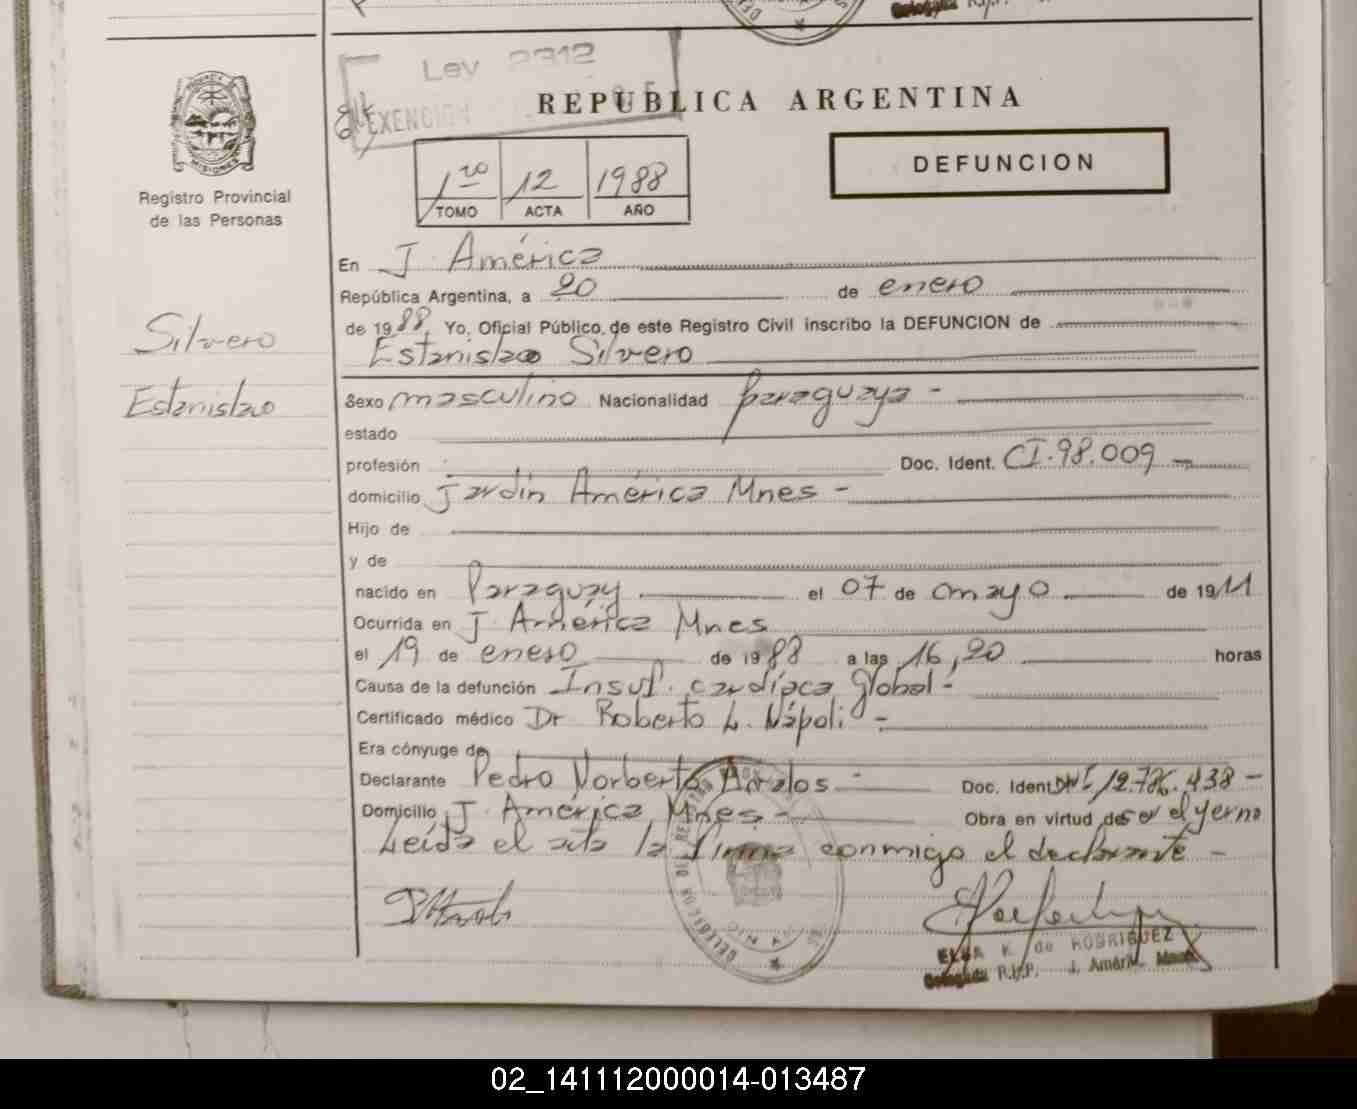 Ley 2312
EXENCION
REPUBLICA ARGENTINA
DEFUNCION
1ro 12 1988
TOMO ACTA AÑO
Registro Provincial
de las Personas
Silvero
Estanislao
En J. América
República Argentina, a 20 de enero
de 1988. Yo, Oficial Público de este Registro Civil inscribo la DEFUNCION de
Estanislao Silvero
Sexo masculino Nacionalidad paraguaya -
estado
profesión Doc. Ident. CI.98.009 -
domicilio Jardín América Mnes -
Hijo de
y de
nacido en Paraguay el 07 de mayo de 1911
Ocurrida en J. América Mnes
el 19 de enero de 1988 a las 16,20 horas
Causa de la defunción Insuf. cardíaca global -
Certificado médico Dr Roberto L. Nápoli -
Era cónyuge de
Declarante Pedro Norberto - Doc. Ident. DNI 12.786.438 -
Domicilio J. América Mnes - Obra en virtud de ser el yerno
Leída el acta la firma conmigo el declarante -
ELSA K. de RODRIGUEZ
Delegada R.P.P. J. América
02_141112000014-013487